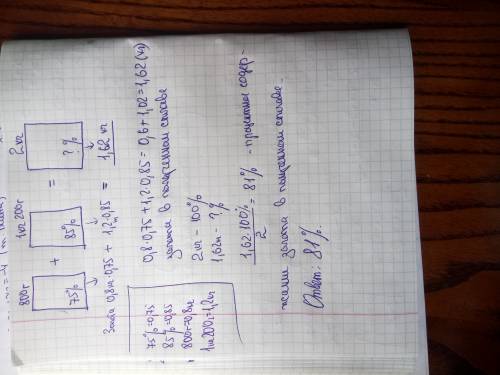 800г 1кг 200г 2кг
75% + 85% = ? %
0,8кг·0,75 + 1,2·0,85 = 1,62 кг
75%=0,75
85%=0,85
800г=0,8кг
1кг200г=1,2кг
0,8·0,75+1,2·0,85=0,6+1,02=1,62(кг)
золота в полученном сплаве
2кг – 100%
1,62кг – ?%
1,62·100%
2
= 81% – процентное содер-
жание золота в полученном сплаве.
Ответ: 81%